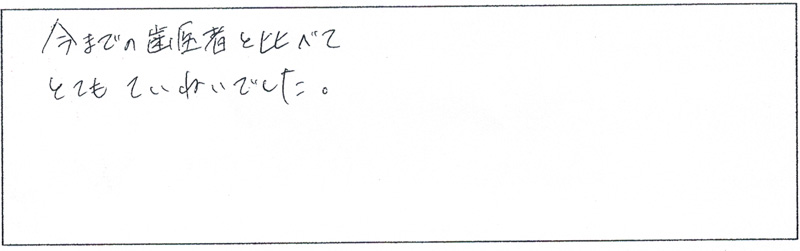 今までの歯医者と比べて
とてもていねいでした。